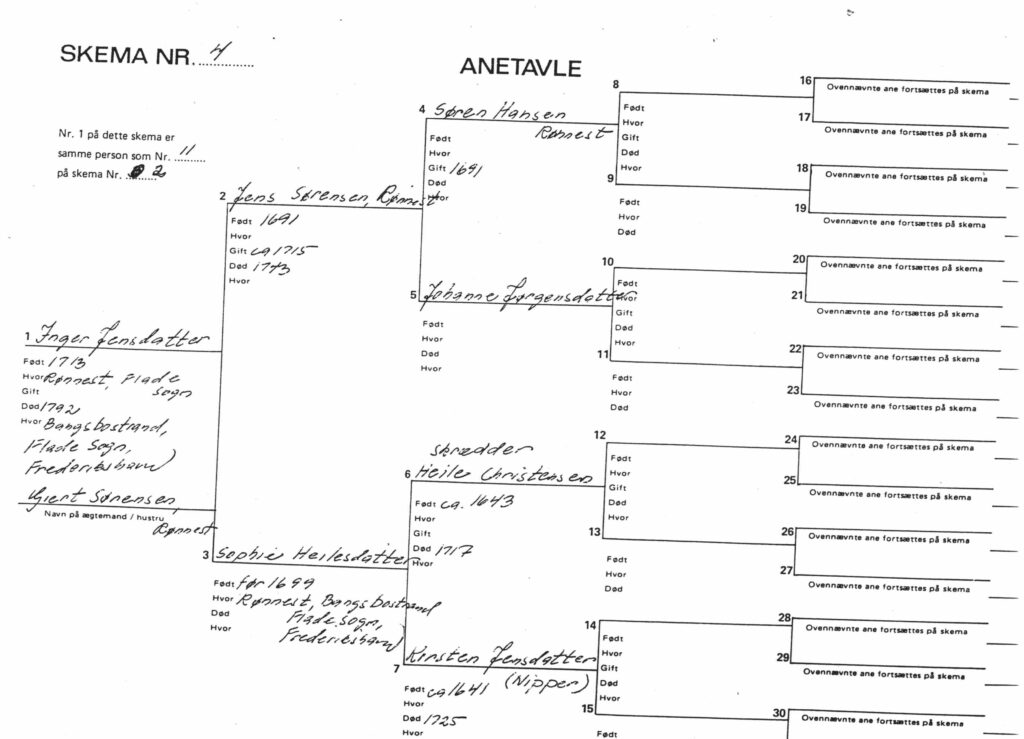 SKEMA NR. 4
ANETAVLE
Nr. 1 på dette skema er
samme person som Nr. 11
på skema Nr. 2
1 Inger Jensdatter
Født 1713
Hvor Rønnest, Flade
sogn
Gift
Død 1792
Hvor Bangsbostrand,
Flade Sogn,
Frederikshavn
Giert Sørensen,
Rønnest
Navn på ægtemand / hustru
2 Jens Sørensen, Rønnest
Født 1691
Hvor
Gift ca 1715
Død 1773
Hvor
3 Sophie Heilesdatter
Født før 1699
Hvor Rønnest, Bangsbostrand
Død Flade sogn,
Hvor Frederikshavn
4 Søren Hansen
Rønnest
Født
Hvor
Gift 1691
Død
Hvor
5 Johanne Jørgensdatter
Født
Hvor
Død
Hvor
skrædder
6 Heile Christensen
Født ca. 1643
Hvor
Gift
Død 1717
Hvor
Kirsten Jensdatter
7 (Nipper)
Født ca 1641
Hvor
Død 1725
Hvor
8
Født
Hvor
Gift
Død
Hvor
9
Født
Hvor
Død
10
Født
Hvor
Gift
Død
Hvor
11
Født
Hvor
Død
12
Født
Hvor
Gift
Død
Hvor
13
Født
Hvor
Død
14
Født
Hvor
Gift
Død
Hvor
15
Født
16
Ovennævnte ane fortsættes på skema
17
Ovennævnte ane fortsættes på skema
18
Ovennævnte ane fortsættes på skema
19
Ovennævnte ane fortsættes på skema
20
Ovennævnte ane fortsættes på skema
21
Ovennævnte ane fortsættes på skema
22
Ovennævnte ane fortsættes på skema
23
Ovennævnte ane fortsættes på skema
24
Ovennævnte ane fortsættes på skema
25
Ovennævnte ane fortsættes på skema
26
Ovennævnte ane fortsættes på skema
27
Ovennævnte ane fortsættes på skema
28
Ovennævnte ane fortsættes på skema
29
Ovennævnte ane fortsættes på skema
30
Ovennævnte ane fortsættes på skema